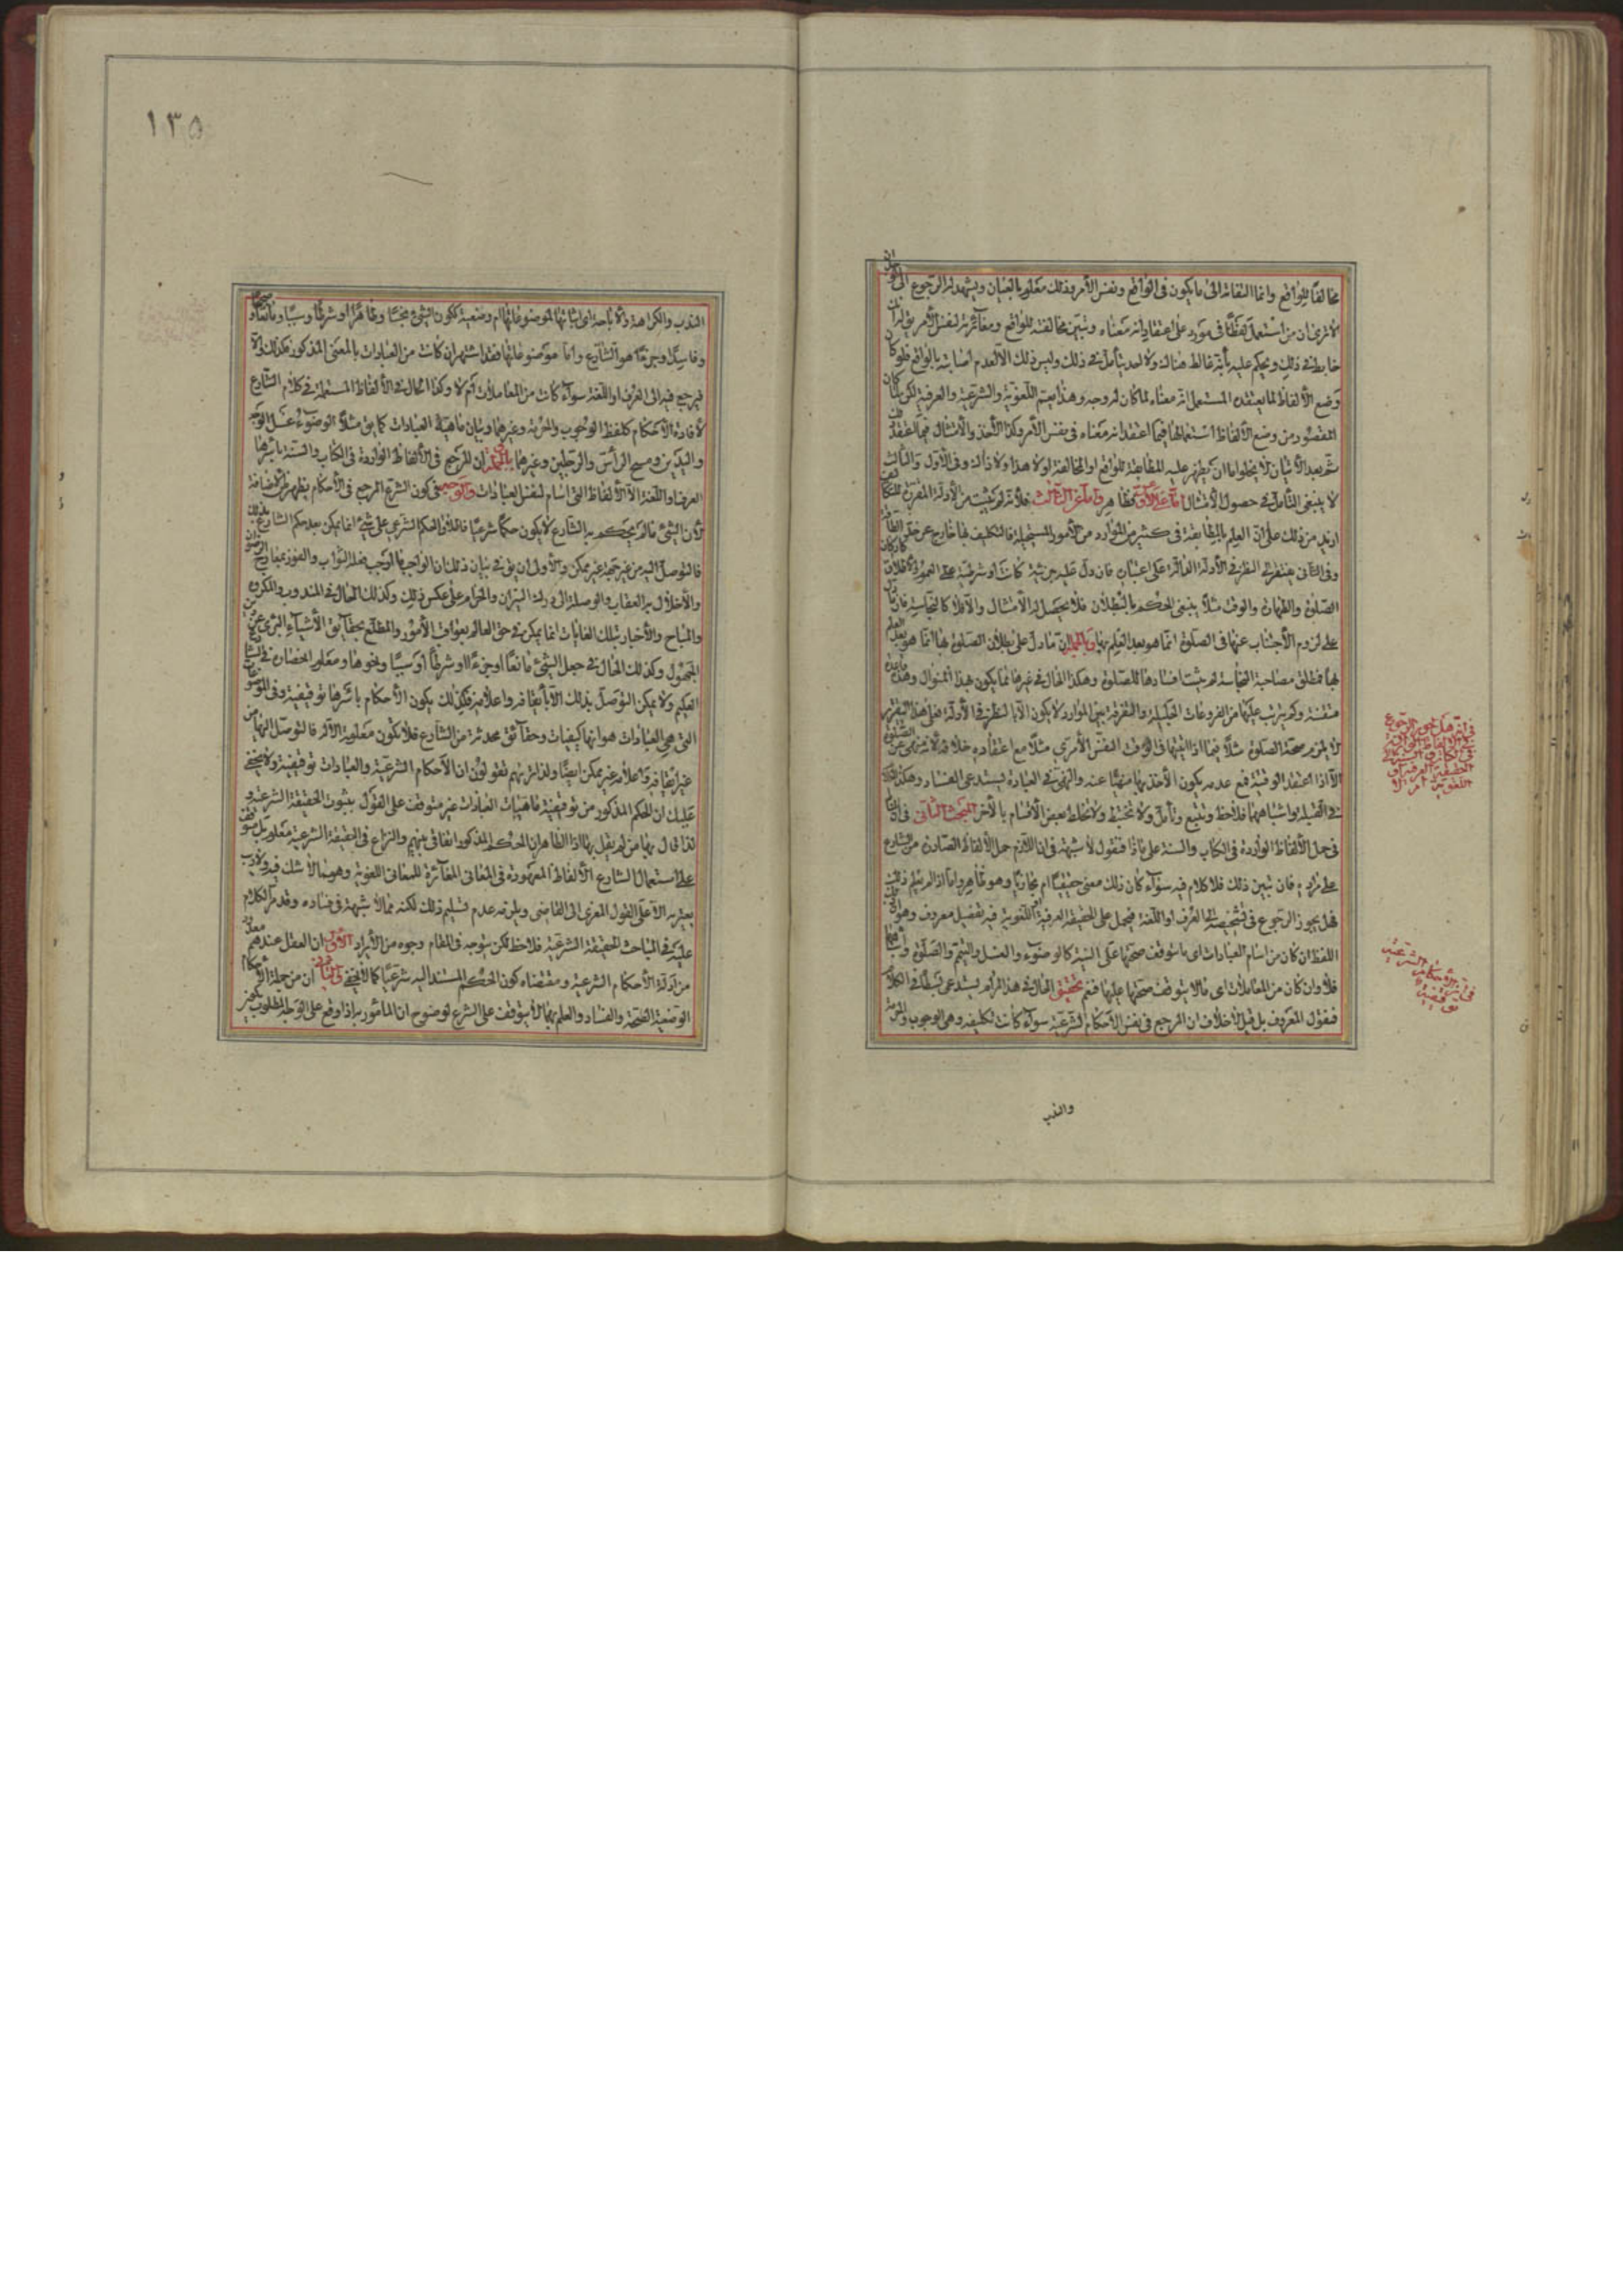 مخالفًا للواقع وانما البقاء الى ما يكون فى الواقع ونفس الأمر وذلك معلوم بالعيان ويشهد له الرجوع الى
الا ترى ان من استعمل لفظًا فى مورد على اعتقاد انه معناه وتبين مخالفته للواقع ومغايرته لنفس الأمر
خابط فى ذلك ويحكم عليه بأنه غالط هنالك ولا احد يتأمل فى ذلك وليس ذلك الا لعدم اصابته بالواقع فلو كان
وضع الألفاظ لما يعتقده المستعمل انه معناه لما كان له وجه وهذا يعم اللغوية والشرعية والعرفية لكن لما كان
المقصود من وضع الألفاظ استعمالها فيما اعتقد انه معناه فى نفس الأمر وكذا الأخذ والأمتثال فيما اعتقد
ثم بعد الأتيان لا يخلو اما ان يظهر عليه المطابقة للواقع او المخالفة او لا هذا ولا ذاك وفى الأول والثالث
لا ينبغى التأمل فى حصول الأمتثال اما على الأول فظاهر واما على الثالث فلأنه لم يثبت من الأدلة المقررة للتكاليف
ازيد من ذلك على ان العلم بالمطابقة فى كثير من الموارد من الأمور المستحيلة فالتكليف بها خارج عن حيز الطاقة
وفى الثانى يفتقر الى النظر فى الأدلة الدالة على اعتباره فان دل عليه جزئية كانت او شرطية على العموم
الصلوة والطهارة والوقت مثلًا ينبغى الحكم بالبطلان فلا يحصل له الأمتثال والا فلا كالنجاسة فان ما دل
على لزوم الأجتناب عنها فى الصلوة انما هو بعد العلم بها وبالجملة ان ما دل على بطلان الصلوة بها انما هو بعد العلم
بها فمطلق مصاحبة النجاسة لم يثبت افسادها للصلوة وهكذا الحال فى غيرها مما يكون هذا المنوال وهذه قاعدة
متقنة وكم يترتب عليها من الفروعات الجليلة والتفرقة بين الموارد لا يكون الا بالنظر فى الأدلة فعلى هذا التقرير
لا يلزم صحة الصلوة مثلًا فيما اذا اتيتها فى الوقت النفس الأمرى مثلًا مع اعتقاده خلافه لأنه منهى عن الصلوة
الا اذا اعتقد الوقتية فمع عدمه يكون الأخذ بها منهيًا عنه والنهى فى العبادة يستدعى الفساد وهكذا الحال
فى القبلة واشباههما فلاحظ وتتبع وتأمل ولا تخبط ولا تخلط بعض الأقسام بالأخر المبحث الثانى فى ان
فى حمل الألفاظ الواردة فى الكتاب والسنة على ماذا فنقول لا شبهة فى ان اللازم حمل الألفاظ الصادرة من الشارع
على مراده فان تبين ذلك فلا كلام فيه سوآء كان ذلك معنى حقيقيًا ام مجازيًا وهو ظاهر واما اذا لم يعلم ذلك
فهل يجوز الرجوع فى تشخيصه الى العرف او اللغة فيحمل على الحقيقة العرفية او اللغوية فيه تفصيل معروف وهو ان
اللفظ ان كان من اسام العبادات اى ما يتوقف صحتها على النية كالوضوء والغسل والتيمم والصلوة واشباهها
فلا وان كان من المعاملات اى ما لا يتوقف صحتها عليها فنعم تحقيق الحال فى هذا المرام يستدعى بسطًا فى الكلام
فنقول المعروف بل قيل لا خلاف ان المرجع فى نفس الأحكام الشرعية سوآء كانت تكليفية وهى الوجوب والحرمة
والندب
فى انه هل يجوز الرجوع
فى الألفاظ الواردة
فى الكتاب والسنة الى
الحقيقة العرفية او
اللغوية ام لا
فى ان الأحكام الشرعية
توقيفية
١٣٥
الندب والكراهة والأباحة اى اثباتها لموضوعاتها ام وضعية ككون الشئ نجسًا وطاهرًا او شرطًا وسببًا ومانعًا وصحيحًا
وفاسدًا وجزءًا هو الشارع واما موضوعاتها فقد اشتهر ان كانت من العبادات بالمعنى المذكور فكذلك والا
فيرجع فيه الى العرف او اللغة سوآء كانت من المعاملات ام لا وكذا الحال فى الألفاظ المستعملة فى كلام الشارع
لأفادة الأحكام كلفظ الوجوب والحرمة وغيرهما وبيان ماهية العبادات كما يق مثلًا الوضوء غسل الوجه
واليدين ومسح الرأس والرجلين وغيرهما بالجملة ان المرجع فى الألفاظ الواردة فى الكتاب والسنة بأسرها
العرف او اللغة الا الألفاظ التى اسام لنفس العبادات والوجه فى كون الشرع المرجع فى الأحكام يظهر
لأن الشئ ما لم يحكم به الشارع لا يكون حكمًا شرعيًا فاطلاق الحكم الشرعى على شئ انما يمكن بعد حكم الشارع بذلك
فالتوصل اليه من غير جهته غير ممكن والأولى ان يق فى بيان ذلك ان الواجب ما يوجب فعله الثواب والفوز بمفاز
والأخلال به العقاب والوصلة الى درك النيران والحرام على عكس ذلك وكذلك الحال فى المندوب والمكروه
والمباح والأخبار بتلك الغايات انما يمكن فى حق العالم بعواقب الأمور والمطلع بحقايق الأشيآء البرى عن
الجهول وكذلك الحال فى جعل الشئ مانعًا او جزءًا او شرطًا او سببًا ونحوها ومعلوم انحصاره فى الشارع
الحكيم ولا يمكن التوصل بذلك الا بأيقافه واعلامه فلذلك يكون الأحكام بأسرها توقيفية وفى الموضوعات
التى هى العبادات هو انها كيفيات وحقآئق محدثة من الشارع فلا تكون معلومة الا له فالتوصل اليها من
غير ايقافه واعلامه غير ممكن ايضًا ولذا تريهم يقولون ان الأحكام الشرعية والعبادات توقيفية ولا يخفى
عليك ان الحكم المذكور من توقيفية ماهيات العبادات غير متوقف على القول بثبوت الحقيقة الشرعية و
لذا قال بها من لم يقل بها اذ الظاهر ان الحكم المذكور اتفاقى بينهم والنزاع فى الحقيقة الشرعية معلوم بل يتوقف
على استعمال الشارع الألفاظ المعهودة فى المعانى المغآئرة للمعانى اللغوية وهو مما لا شك فيه ولا ريب
يعتريه الا على القول المعزى الى القاضى ويلزمه عدم تسليم ذلك لكنه مما لا شبهة فى فساده وقد مر الكلام
عليه فى المباحث الحقيقة الشرعية فلاحظ لكن يتوجه فى المقام وجوه من الأيراد الأول ان العقل عندهم معدود
من ادلة الأحكام الشرعية ومقتضاه كون الحكم المستند اليه شرعيًا كما لا يخفى والثانى ان من جملة الأحكام
الوضعية الصحة والفساد والعلم بهما لا يتوقف على الشرع لوضوح ان المأمور به اذا وقع على الوجه المطلوب